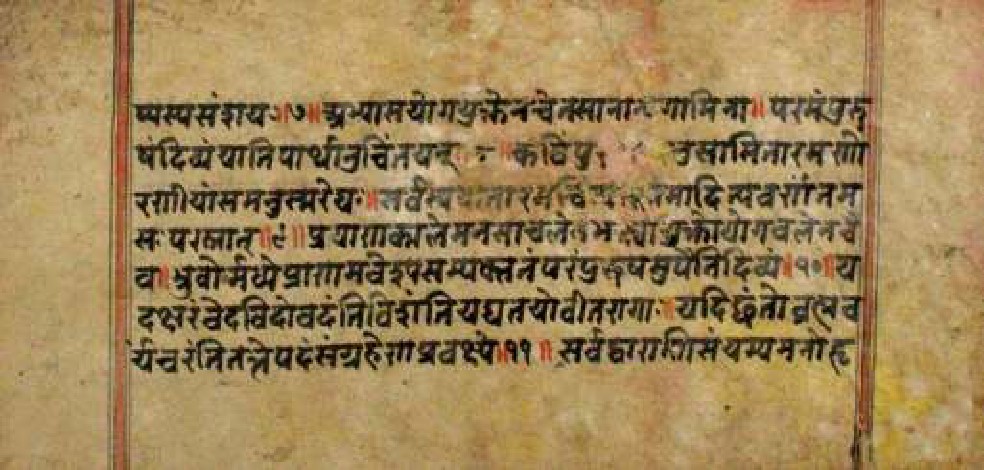 ष्यस्यसंशयः ७॥ अभ्यासयोगयुक्तेनचेतसानान्यगामिना॥ परमंपुरु
षंदिव्यंयातिपार्थानुचिंतयन् कविंपु नुसासितारमणो
रणीयांसमनुस्मरेद्यः॥ सर्वस्यधातारमचिंत्य मादित्यवर्णंतम
सः परस्तात्॥९॥ प्रयाणकालेमनसाचलेन युक्तोयोगबलेनचै
व॥ भ्रुवोर्मध्येप्राणमावेश्यसम्यक्सतंपरंपुरुषमुपैतिदिव्यं॥१०॥ य
दक्षरंवेदविदोवदंतिविशंतियद्यतयोवीतरागाः॥ यदिछंतोब्रह्मच
र्यंचरंतितत्तेपदंसंग्रहेणप्रवक्ष्ये॥११॥ सर्वद्वाराणिसंयम्यमनोहृ